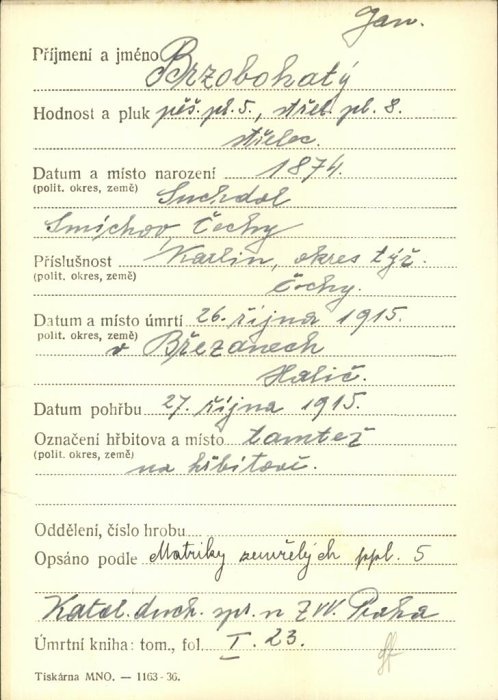 Jan.
Příjmení a jméno Brzobohatý
Hodnost a pluk pěš. pl. 5., střel. pl. 8.
střelec.
Datum a místo narození 1874.
(polit. okres, země) Suchdol
Smíchov, Čechy
Příslušnost Karlín, okres týž.
(polit. okres, země) Čechy.
Datum a místo úmrtí 26. října 1915.
polit. okres, země) v Břežanech
Halič.
Datum pohřbu 27. října 1915.
Označení hřbitova a místo tamtéž
(polit. okres, země) na hřbitově.
Oddělení, číslo hrobu
Opsáno podle Matriky zemřelých ppl. 5
Katol. duch. spr. n ZVV. Praha
Úmrtní kniha: tom., fol. I. 23.
Tiskárna MNO. — 1163-36.